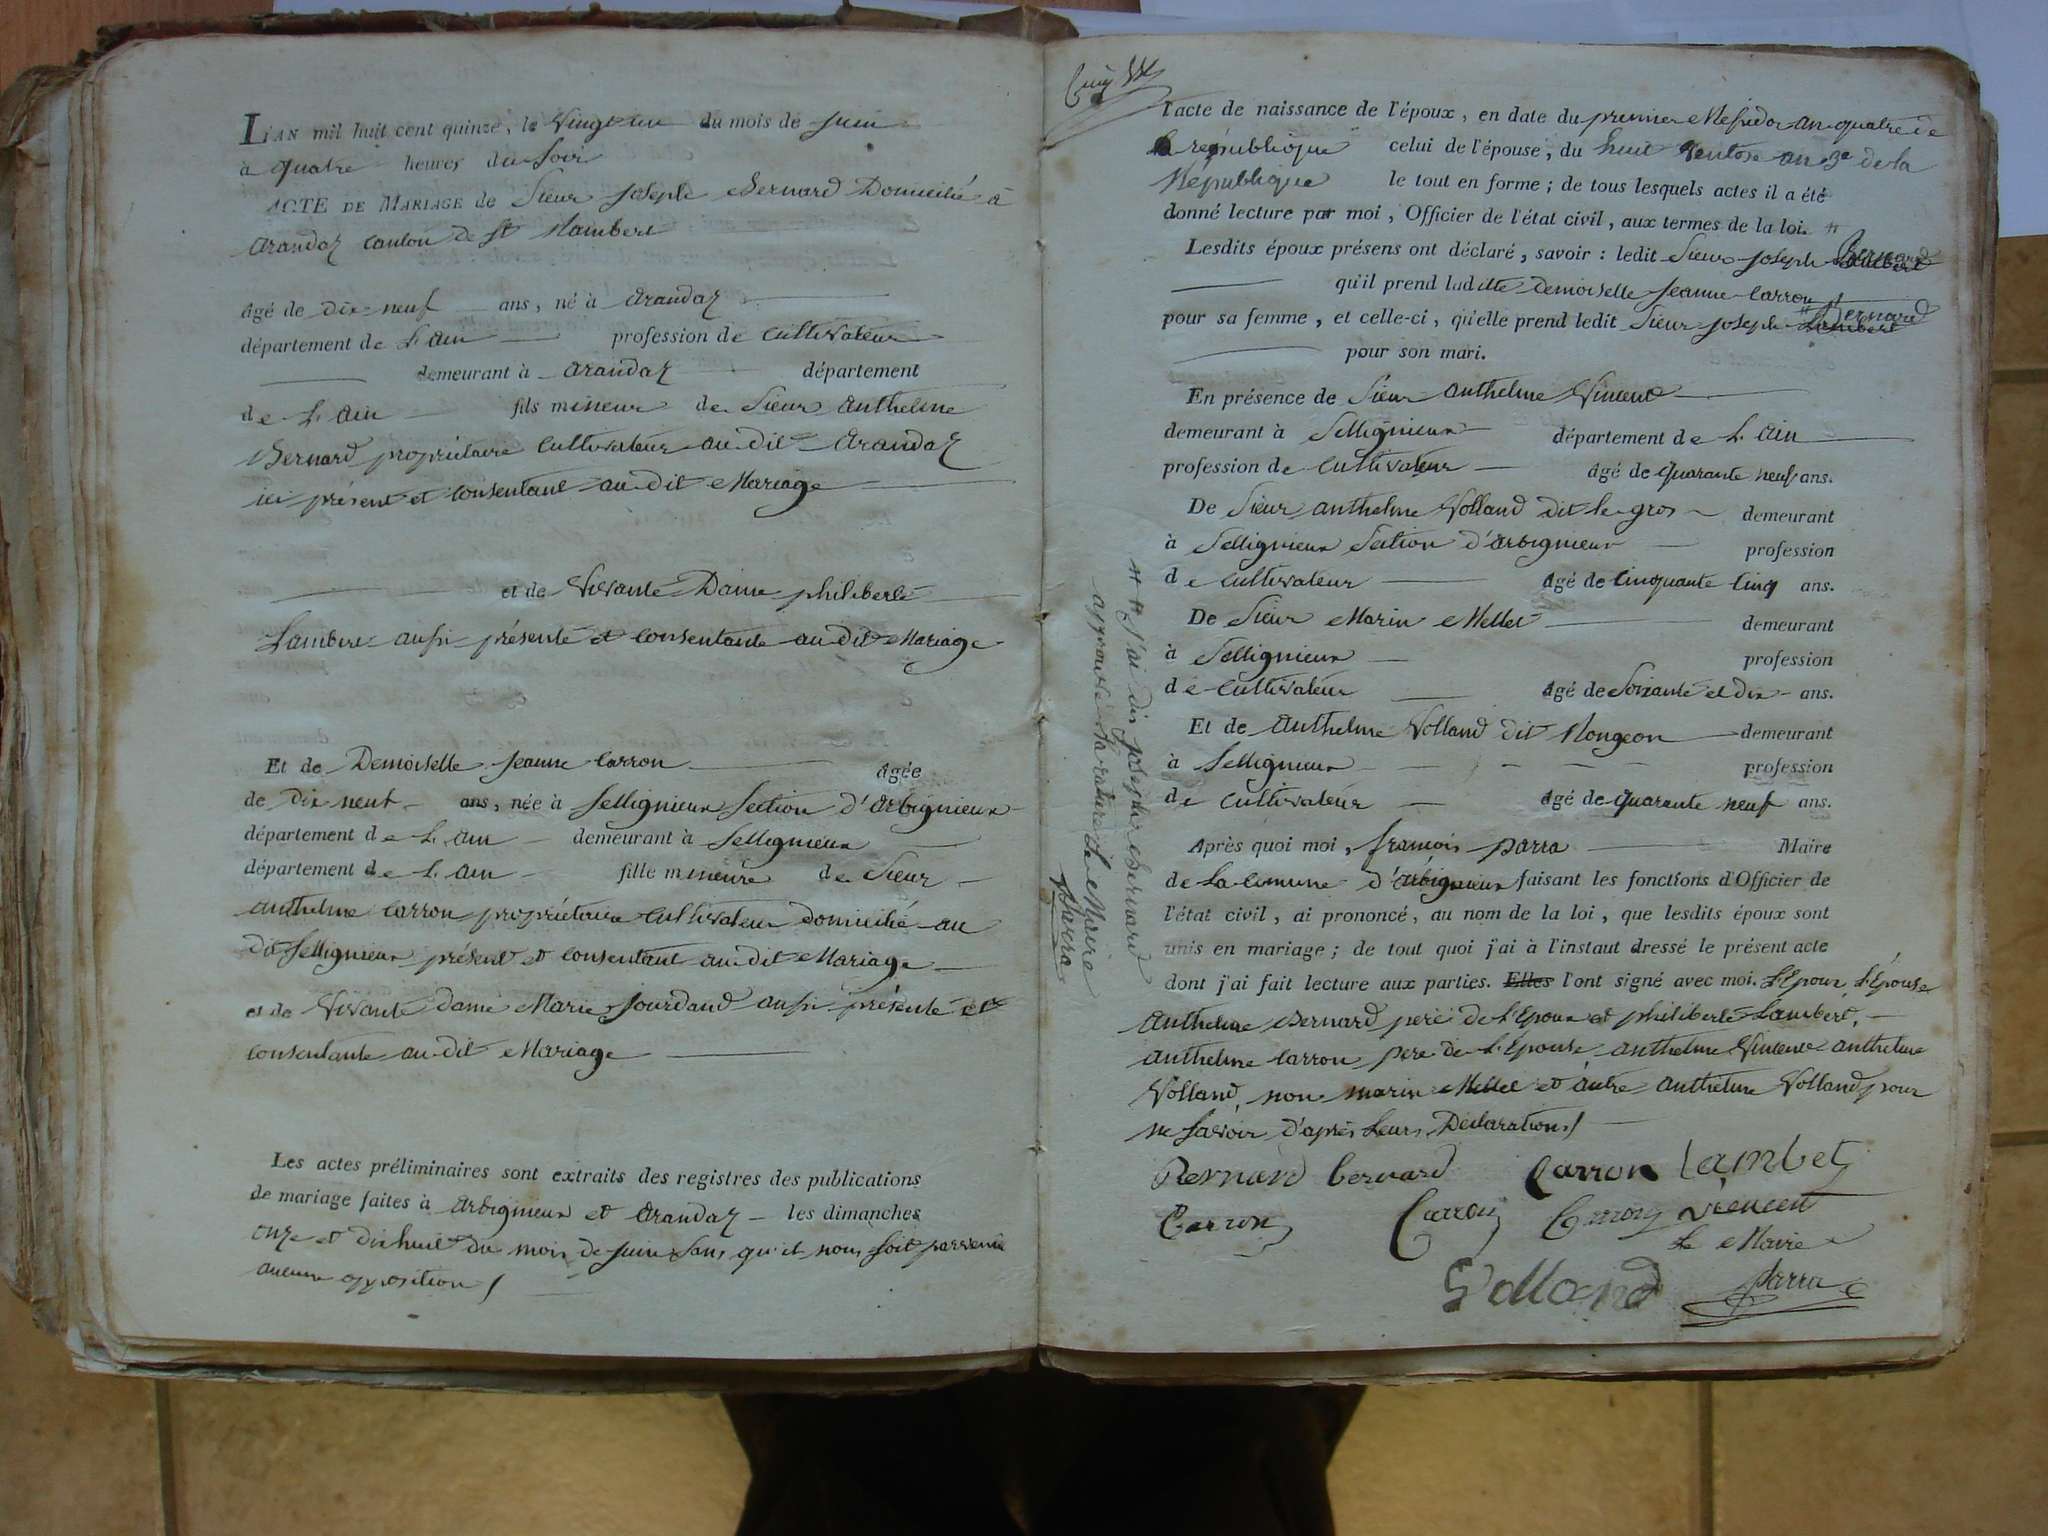 L'AN mil huit cent quinze, le vingt un du mois de juin
à quatre heures du soir
ACTE DE MARIAGE de Sieur joseph Bernard Domicilié à
arandaz canton de st Rambert
Agé de dix-neuf ans, né à arandaz
département de L'ain profession de cultivateur
demeurant à arandaz département
de L'ain fils mineur de Sieur anthelme
Bernard propriétaire cultivateur au dit arandaz
ici présent et consentant au dit Mariage
et de vivante Dame philiberte
Lambert aussi présente et consentante au dit Mariage
Et de Demoiselle jeanne Carron Agée
de dix neuf ans, née à Sellignieux Section d'arbignieux
département de L'ain demeurant à Sellignieux
département de L'ain fille mineure de Sieur
anthelme Carron propriétaire cultivateur domicilié au
dit Sellignieux présent et consentant au dit Mariage
et de vivante dame Marie jourdand aussi présente et
consentante au dit Mariage
Les actes préliminaires sont extraits des registres des publications
de mariage faites à arbignieux et arandaz les dimanches
onze et dix huit du mois de juin sans qu'il nous soit parvenu
aucune opposition /
l'acte de naissance de l'époux, en date du premier Messidor an quatre de
la république celui de l'épouse, du huit ventose an 3e de la
République le tout en forme ; de tous lesquels actes il a été
donné lecture par moi, Officier de l'état civil, aux termes de la loi.
Lesdits époux présens ont déclaré, savoir : ledit Sieur joseph Bernard
qu'il prend ladite demoiselle jeanne Carron
pour sa femme, et celle-ci, qu'elle prend ledit Sieur joseph Lambert Bernard
pour son mari.
En présence de Sieur anthelme Vincent
demeurant à Sellignieux département de L'ain
profession de cultivateur agé de quarante neuf ans.
De Sieur anthelme Volland dit le gros demeurant
à Sellignieux Section d'arbignieux profession
de cultivateur agé de cinquante cinq ans.
De Sieur Marin Mellet demeurant
à Sellignieux profession
de cultivateur agé de Soixante et dix ans.
Et de anthelme Volland dit Mongeon demeurant
à Sellignieux profession
de cultivateur agé de quarante neuf ans.
Après quoi moi, françois parra Maire
de La comune d'arbignieux faisant les fonctions d'Officier de
l'état civil, ai prononcé, au nom de la loi, que lesdits époux sont
unis en mariage ; de tout quoi j'ai à l'instant dressé le présent acte
dont j'ai fait lecture aux parties. Elles l'ont signé avec moi. L'Epoux, L'Epouse
anthelme Bernard pere de L'Epoux et philiberte Lambert,
anthelme Carron pere de L'Epouse anthelme Vincent anthelme
Volland, non marin Mellet et autre anthelme Volland pour
ne savoir d'après leurs Déclarations /
Bernard bernard Carron lambet
Carron Carron Carron vincent
Le Maire
Volland parra
j'ai dis joseph Bernard
approuvé la rature Le Maire
parra